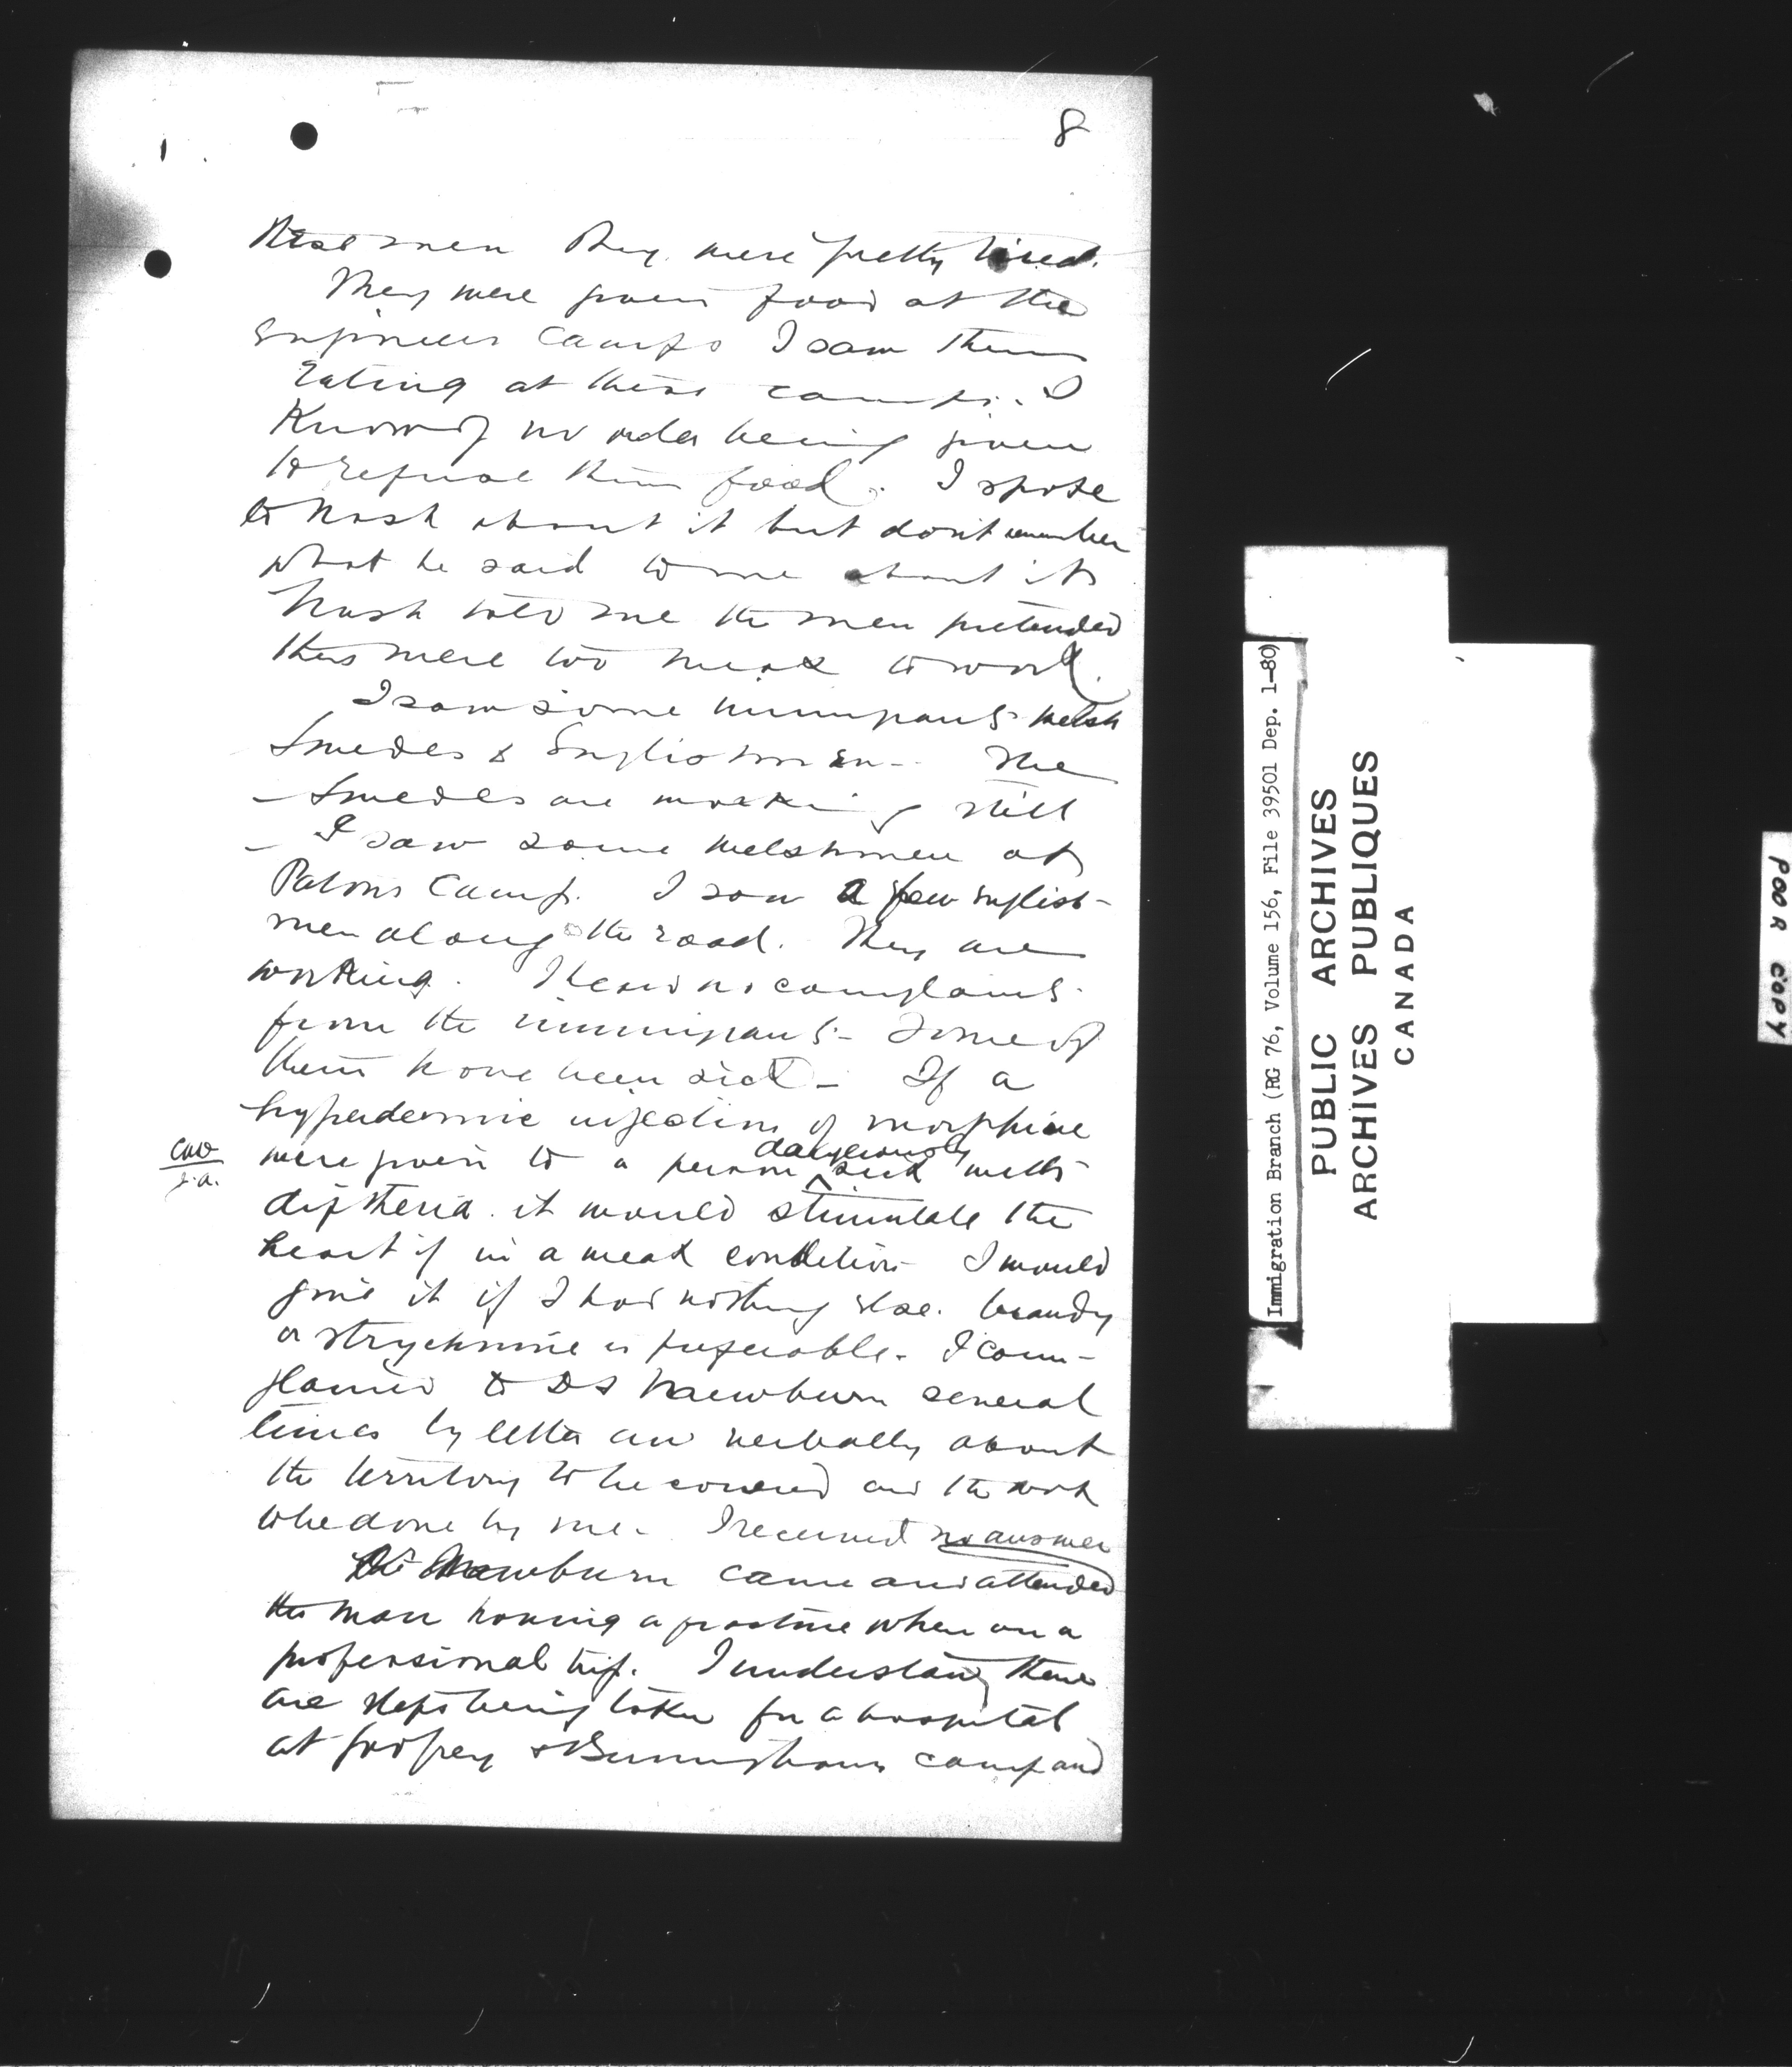 8
these men They were pretty tired.
They were given food at the
Engineers Camps I saw them
Eating at these camps. I
Know of no order being given
to refuse them food. I spoke
to Nash about it but don't remember
what he said to me about it
Nash told me the men pretended
they were too weak to work.
I saw some immigrants Welsh
Swedes & Englishmen - The
- Swedes are working still
- I saw some Welshmen at
Patons Camp. I saw a few English-
men along the road. They are
working. I heard no complaints
from the immigrants - Some of
them have been sick - If a
hypodermic injection of morphine
dangerously
were given to a person ^ sick with
diptheria it would stimulate the
heart if in a weak condition I would
give it if I had nothing else. brandy
or strychnine is preferable - I com-
plained to Dr Mewburn several
times by letter and verbally about
the territory to be covered and the work
to be done by me - I received no answer
Dr Mewburn came and attended
the man having a fracture when on a
professional trip. I understand there
are steps being taken for a hospital
at camp and
Immigration Branch (RG 76, Volume 156, File 39501 Dep. 1-80)
PUBLIC ARCHIVES
ARCHIVES PUBLIQUES
CANADA
POOR COPY